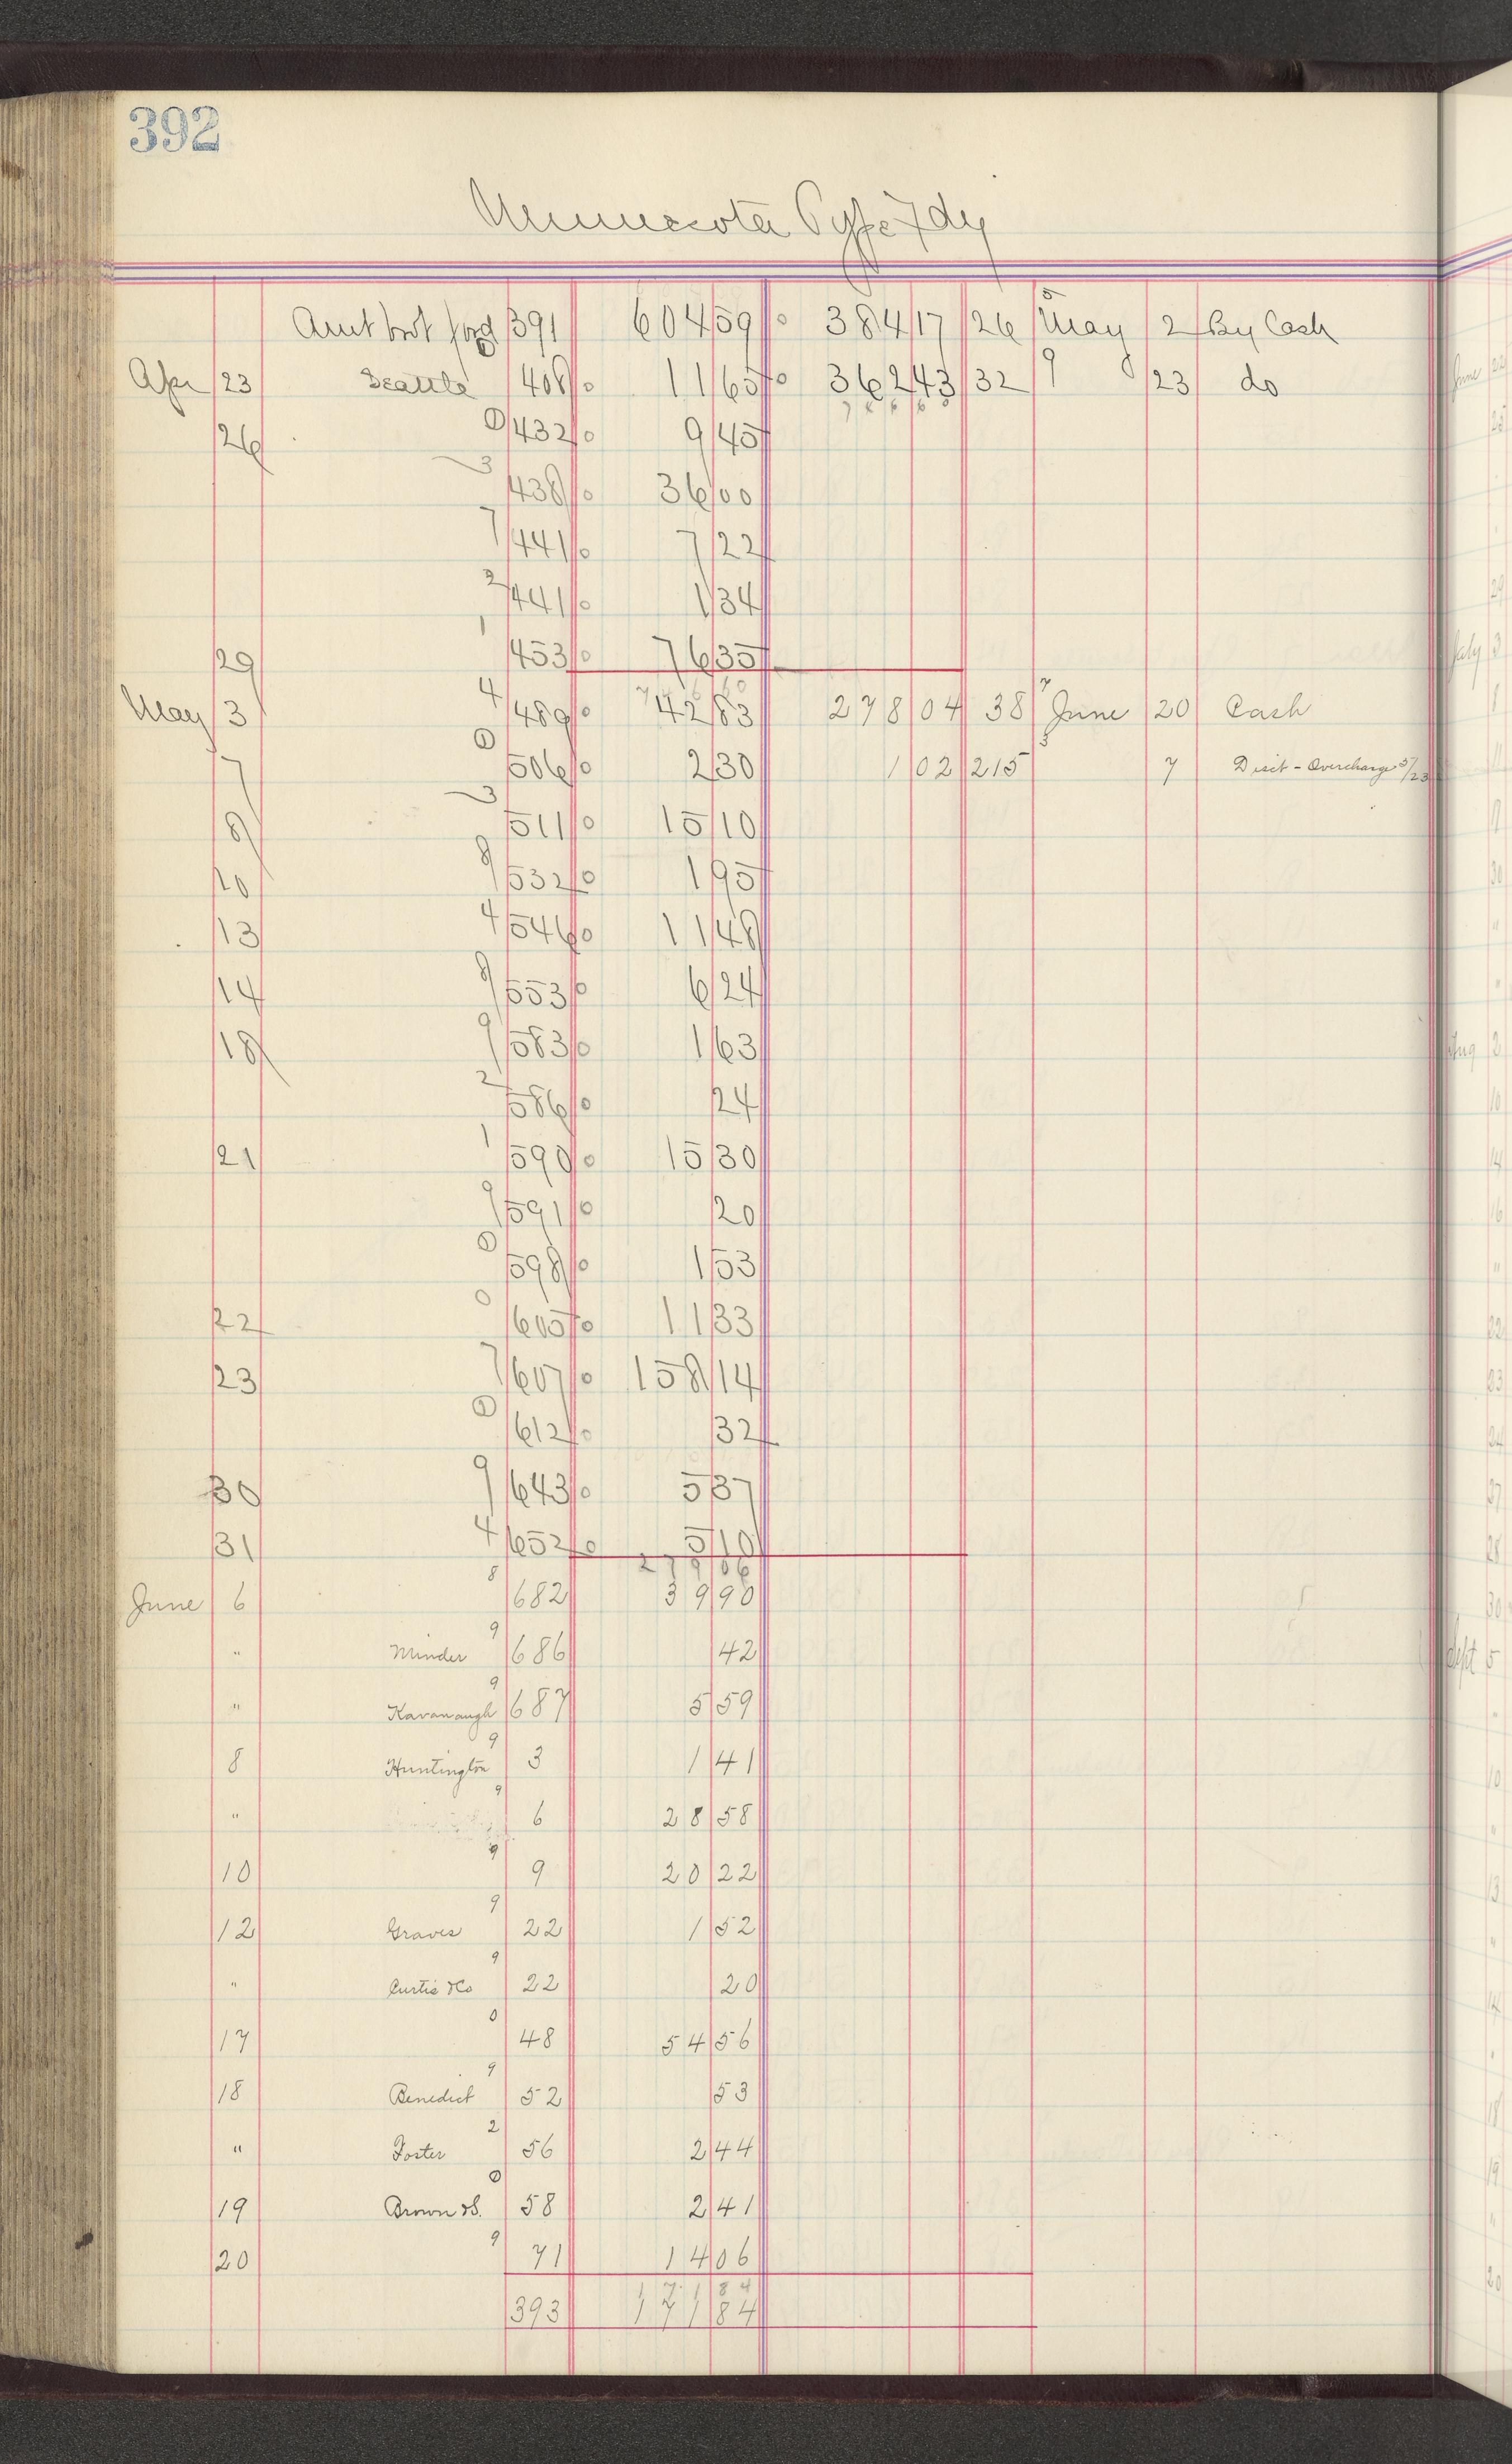 392
Minnesota Type Fdy
Amt brot ford 391 604 59 384 17 26 May 2 By Cash
Apr 23 Seattle 408 11 65 362 43 32 23 do
26 432 9 45
438 36 00
441 7 22
441 1 34
29 453 76 35
May 3 489 42 83 278 04 38 June 20 Cash
7 506 2 30 1 02 215 7 Disct - Overcharge 5/23
8 511 15 10
10 532 1 95
13 546 11 48
14 553 6 24
18 583 1 63
586 24
21 590 15 30
591 20
598 1 53
22 605 11 33
23 607 158 14
612 32
30 643 5 37
31 652 5 10
279 06
June 6 682 39 90
" Minder 686 42
" Kavanaugh 687 5 59
8 Huntington 3 1 41
" 6 28 58
10 9 20 22
12 Graves 22 1 52
" Curtis & Co 22 20
17 48 54 56
18 Benedict 52 53
" Foster 56 2 44
19 Brown & S. 58 2 41
20 71 14 06
171 84
393 171 84